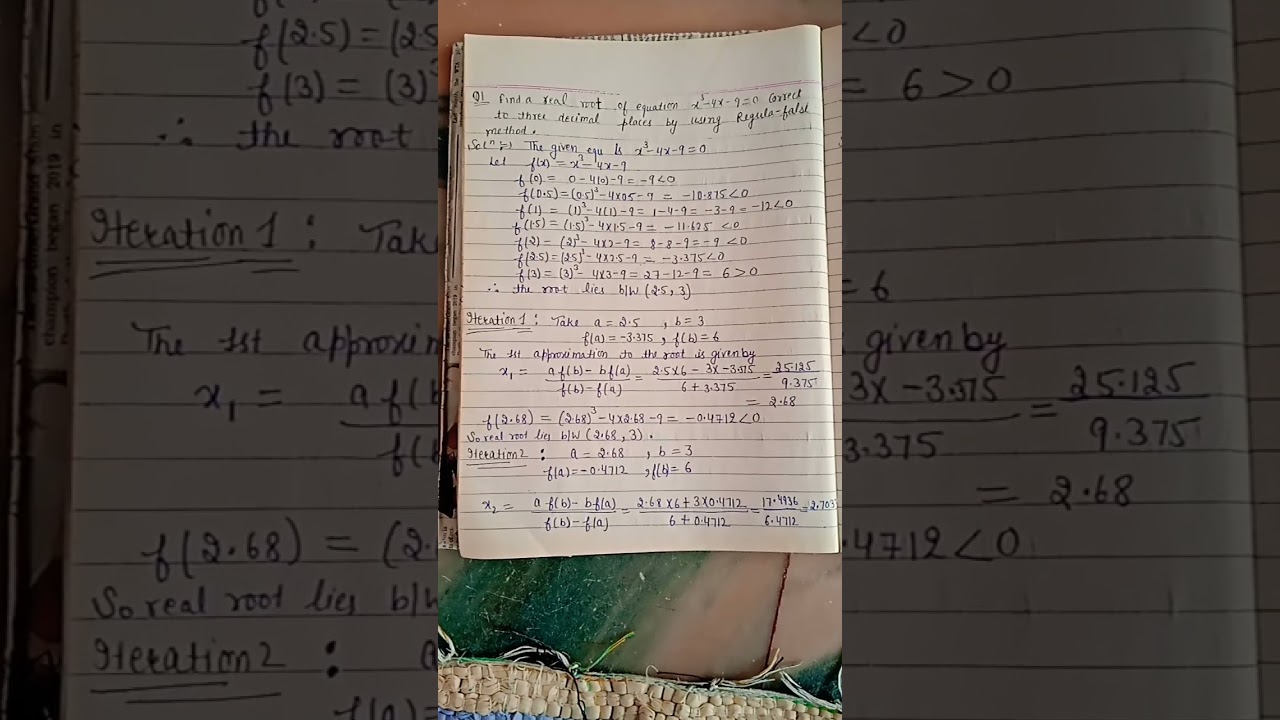 Q1 Find a real root of equation x³-4x-9=0 correct
to three decimal places by using Regula-falsi
method.
Solⁿ:-) The given equ is x³-4x-9=0
Let f(x) = x³-4x-9
f(0) = 0-4(0)-9 = -9<0
f(0.5) = (0.5)³-4x0.5-9 = -10.875<0
f(1) = (1)³-4(1)-9 = 1-4-9 = -3-9 = -12<0
f(1.5) = (1.5)³-4x1.5-9 = -11.625 <0
f(2) = (2)³-4x2-9 = 8-8-9 = -9 <0
f(2.5) = (2.5)³-4x2.5-9 = -3.375<0
f(3) = (3)³-4x3-9 = 27-12-9 = 6>0
∴ the root lies b/w (2.5, 3)
Iteration 1 : Take a = 2.5 , b = 3
f(a) = -3.375 , f(b) = 6
The 1st approximation to the root is given by
x₁ = a f(b) - b f(a) / f(b) - f(a) = 2.5x6 - 3x-3.375 / 6+3.375 = 25.125 / 9.375
= 2.68
f(2.68) = (2.68)³-4x2.68-9 = -0.4712<0
So real root lies b/w (2.68, 3).
Iteration2 : a = 2.68 , b = 3
f(a) = -0.4712 , f(b) = 6
x₂ = a f(b) - b f(a) / f(b) - f(a) = 2.68x6+3x0.4712 / 6+0.4712 = 17.4936 / 6.4712 = 2.703